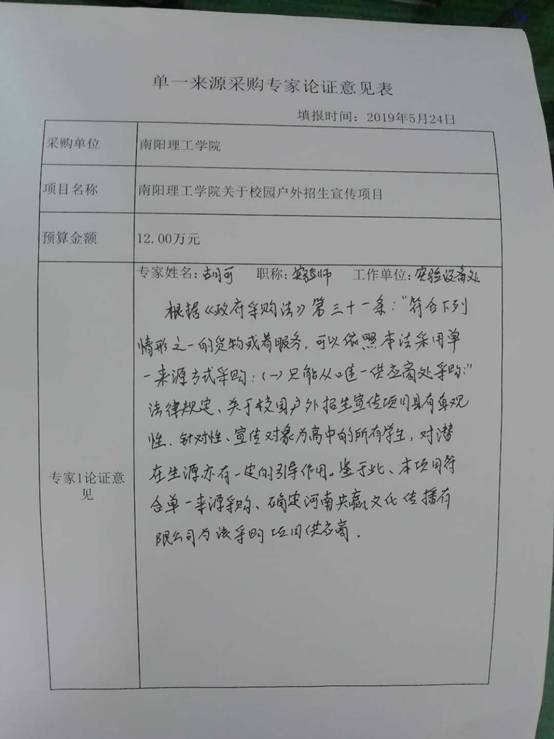 单一来源采购专家论证意见表
填报时间：2019年5月24日
采购单位
南阳理工学院
项目名称
南阳理工学院关于校园户外招生宣传项目
预算金额
12.00万元
专家1论证意见
专家姓名： 职称：实验师 工作单位：实验设备处
根据《政府采购法》第三十一条："符合下列
情形之一的货物或者服务，可以依照本法采用单
一来源方式采购：（一）只能从唯一供应商处采购；"
法律规定、关于校园户外招生宣传项目具有直观
性、针对性、宣传对象为高中的所有学生，对潜
在生源亦有一定的引导作用。鉴于此、本项目符
合单一来源采购、确定河南共赢文化传播有
限公司为该采购项目供应商.